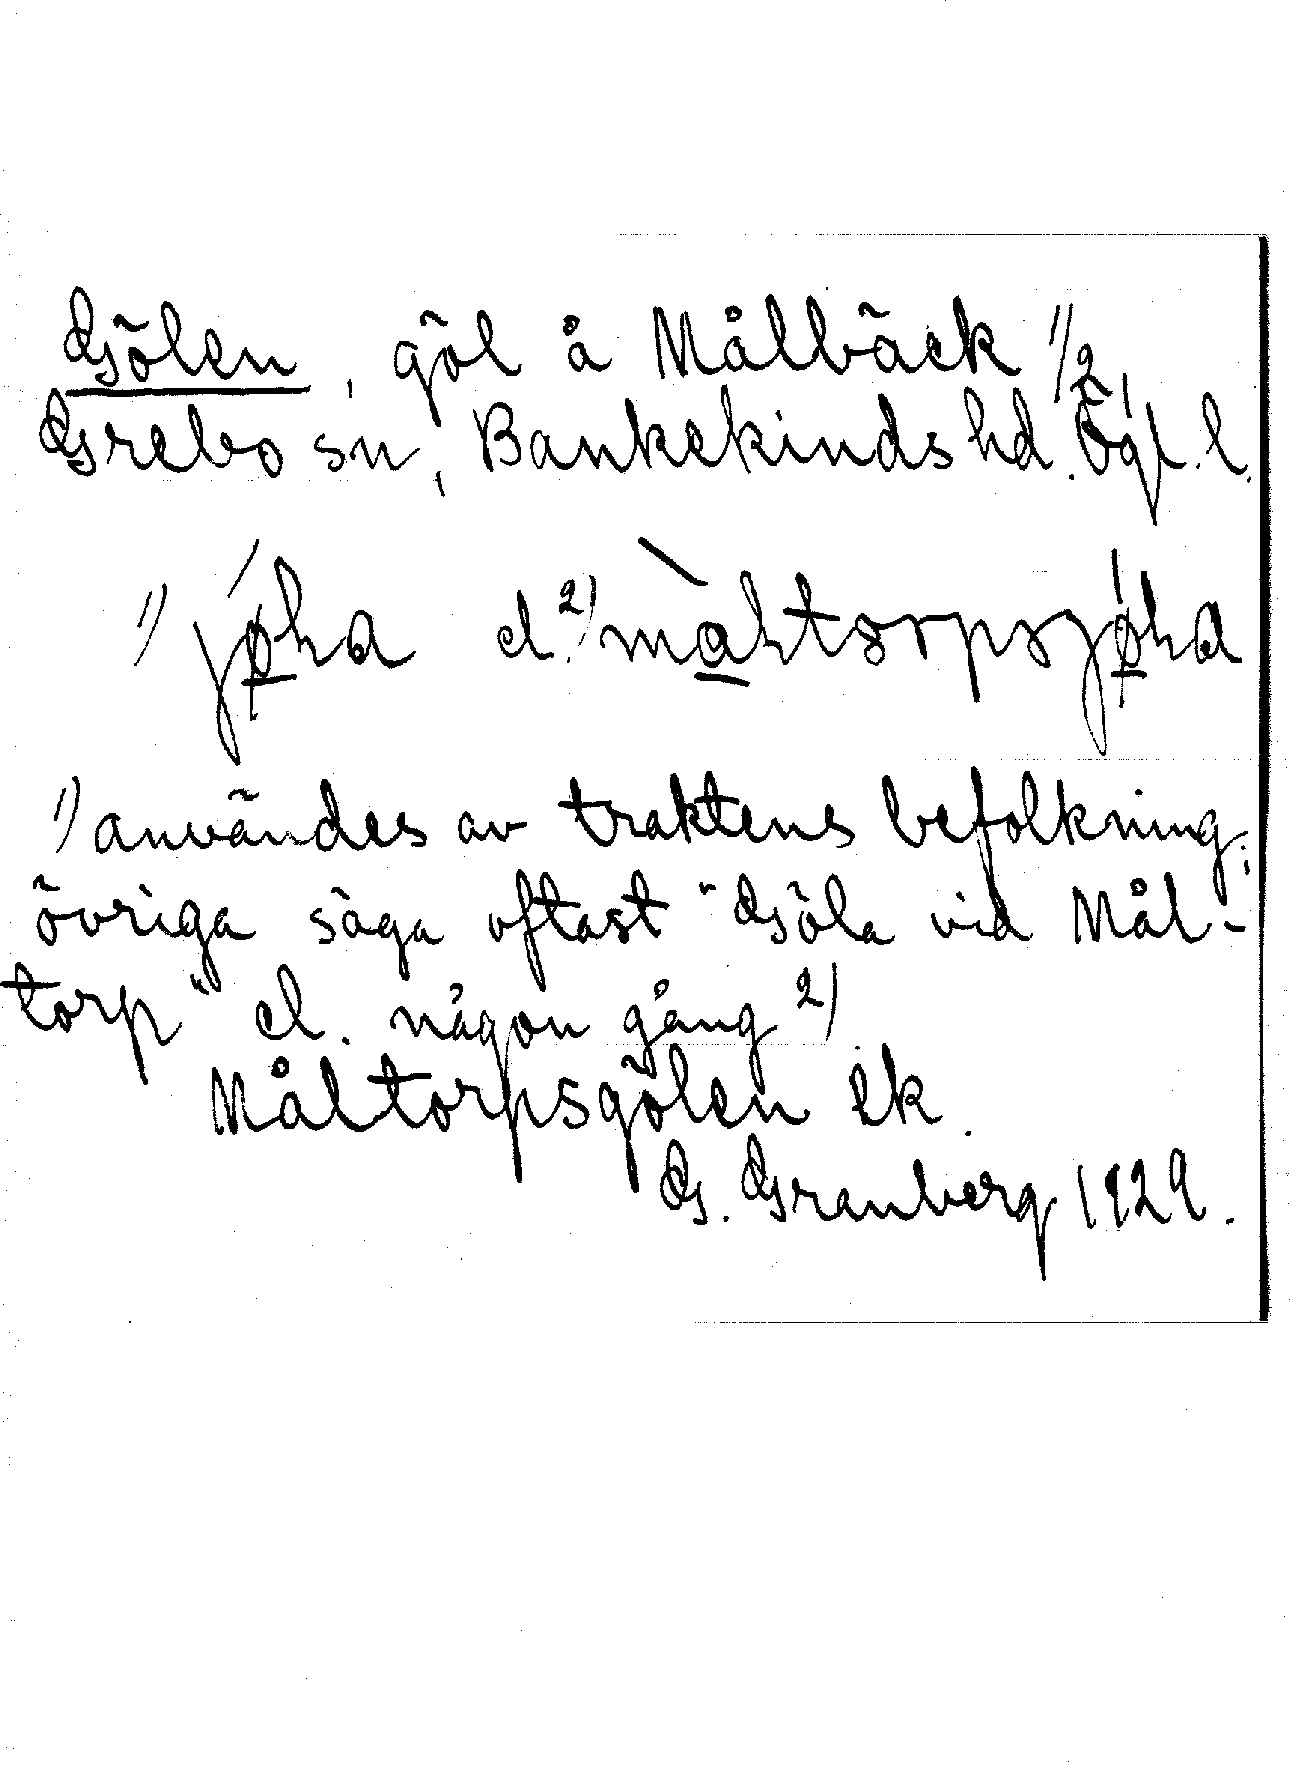 Gölen, göl å Målbäck 1/2,
Grebo sn, Bankekinds hd. Ögl. l.
1) jø̱ha el. 2) ma̱htorpsjø̱ha
1) användes av traktens befolkning;
övriga säga oftast "Göla vid Mål-
torp" el. någon gång 2)
Måltorpsgölen ek.
G. Granberg 1929.